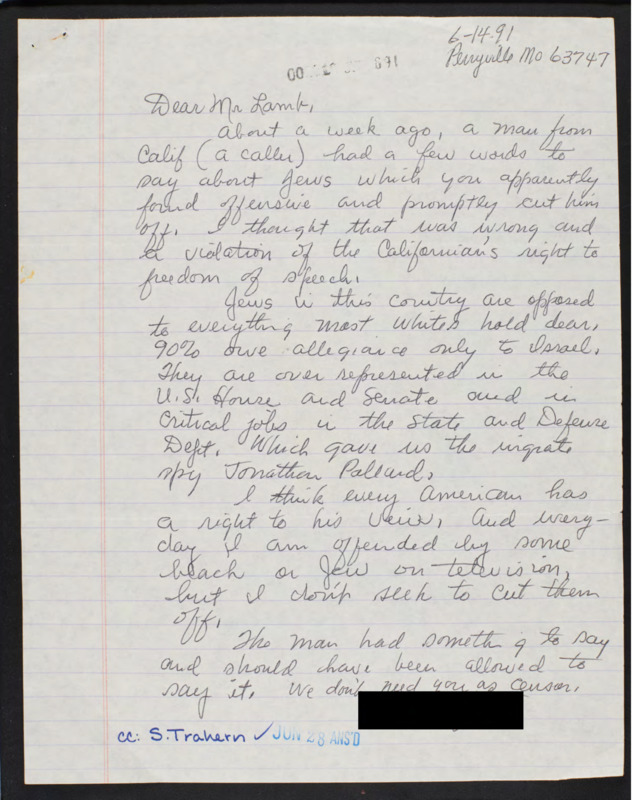 6-14-91
Perryville Mo 63747
Dear Mr Lamb,
About a week ago, a man from
Calif (a caller) had a few words to
say about Jews which you apparently
found offensive and promptly cut him
off. I thought that was wrong and
a violation of the Californian's right to
freedom of speech.
Jews in this country are opposed
to everything most whites hold dear.
90% owe allegiance only to Israel.
They are over represented in the
U.S. House and Senate and in
critical jobs in the State and Defense
Dept. Which gave us the ingrate
spy Jonathan Pollard.
I think every American has
a right to his view. And every-
day I am offended by some
black or Jew on television,
but I don't seek to cut them
off.
The man had something to say
and should have been allowed to
say it. We don't need you as censor.
cc: S. Trahern ✓ JUN 28 ANS'D